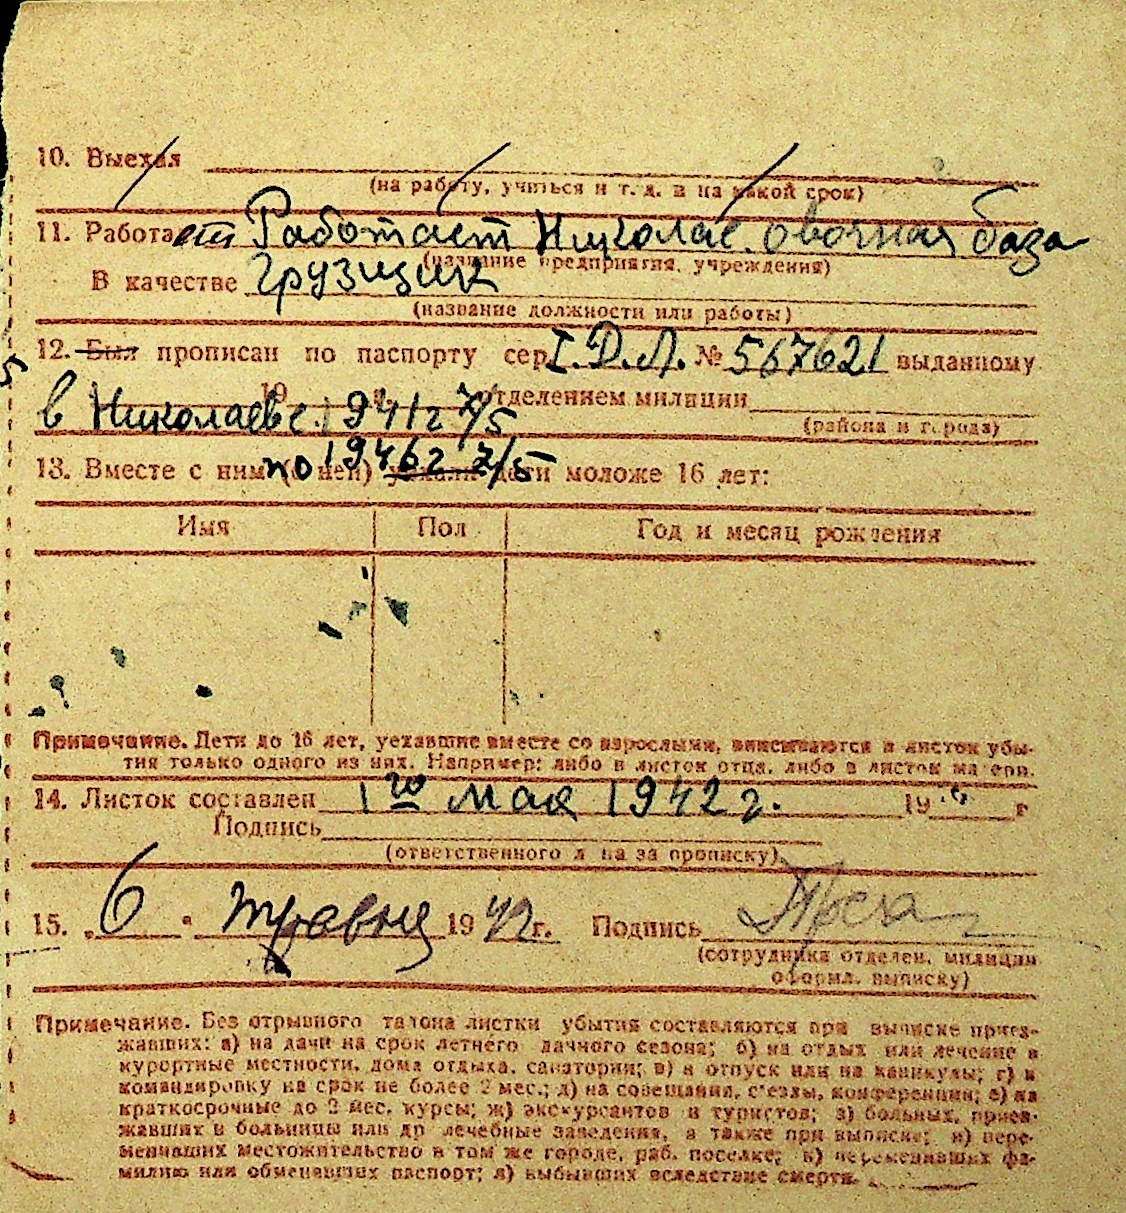 10. Выехал
(на работу, учиться и т. д. и на какой срок)
11. Работает Работает Николае. овочная база
(название предприятия, учреждения)
В качестве грузщик
(название должности или работы)
12. Был прописан по паспорту сер. I Д.Л. № 567621 выданному
в Николаеве 1941 г 7/5 19 г. отделением милиции
(района и города)
по 1946 г 7/5
13. Вместе с ним (с ней) уехали дети моложе 16 лет:
Имя Пол Год и месяц рождения
Примечание. Дети до 16 лет, уехавшие вместе со взрослыми, вписываются в листок убы-
тия только одного из них. Например: либо в листок отца, либо в листок матери.
14. Листок составлен 1го мая 1942 г. 19 г
Подпись
(ответственного лица за прописку)
15. „6" травня 1942 г. Подпись
(сотрудника отделен. милиции
оформл. выписку)
Примечание. Без отрывного талона листки убытия составляются при выписке приез-
жавших: а) на дачи на срок летнего дачного сезона; б) на отдых или лечение в
курортные местности, дома отдыха, санатории; в) в отпуск или на каникулы; г) в
командировку на срок не более 2 мес.; д) на совещания, съезды, конференции; е) на
краткосрочные до 2 мес. курсы; ж) экскурсантов и туристов; з) больных, приез-
жавших в больницы или др лечебные заведения, а также при выписке; и) пере-
менивших местожительство в том же городе, раб. поселке; к) переменивших фа-
милию или обменявших паспорт; л) выбывших вследствие смерти.